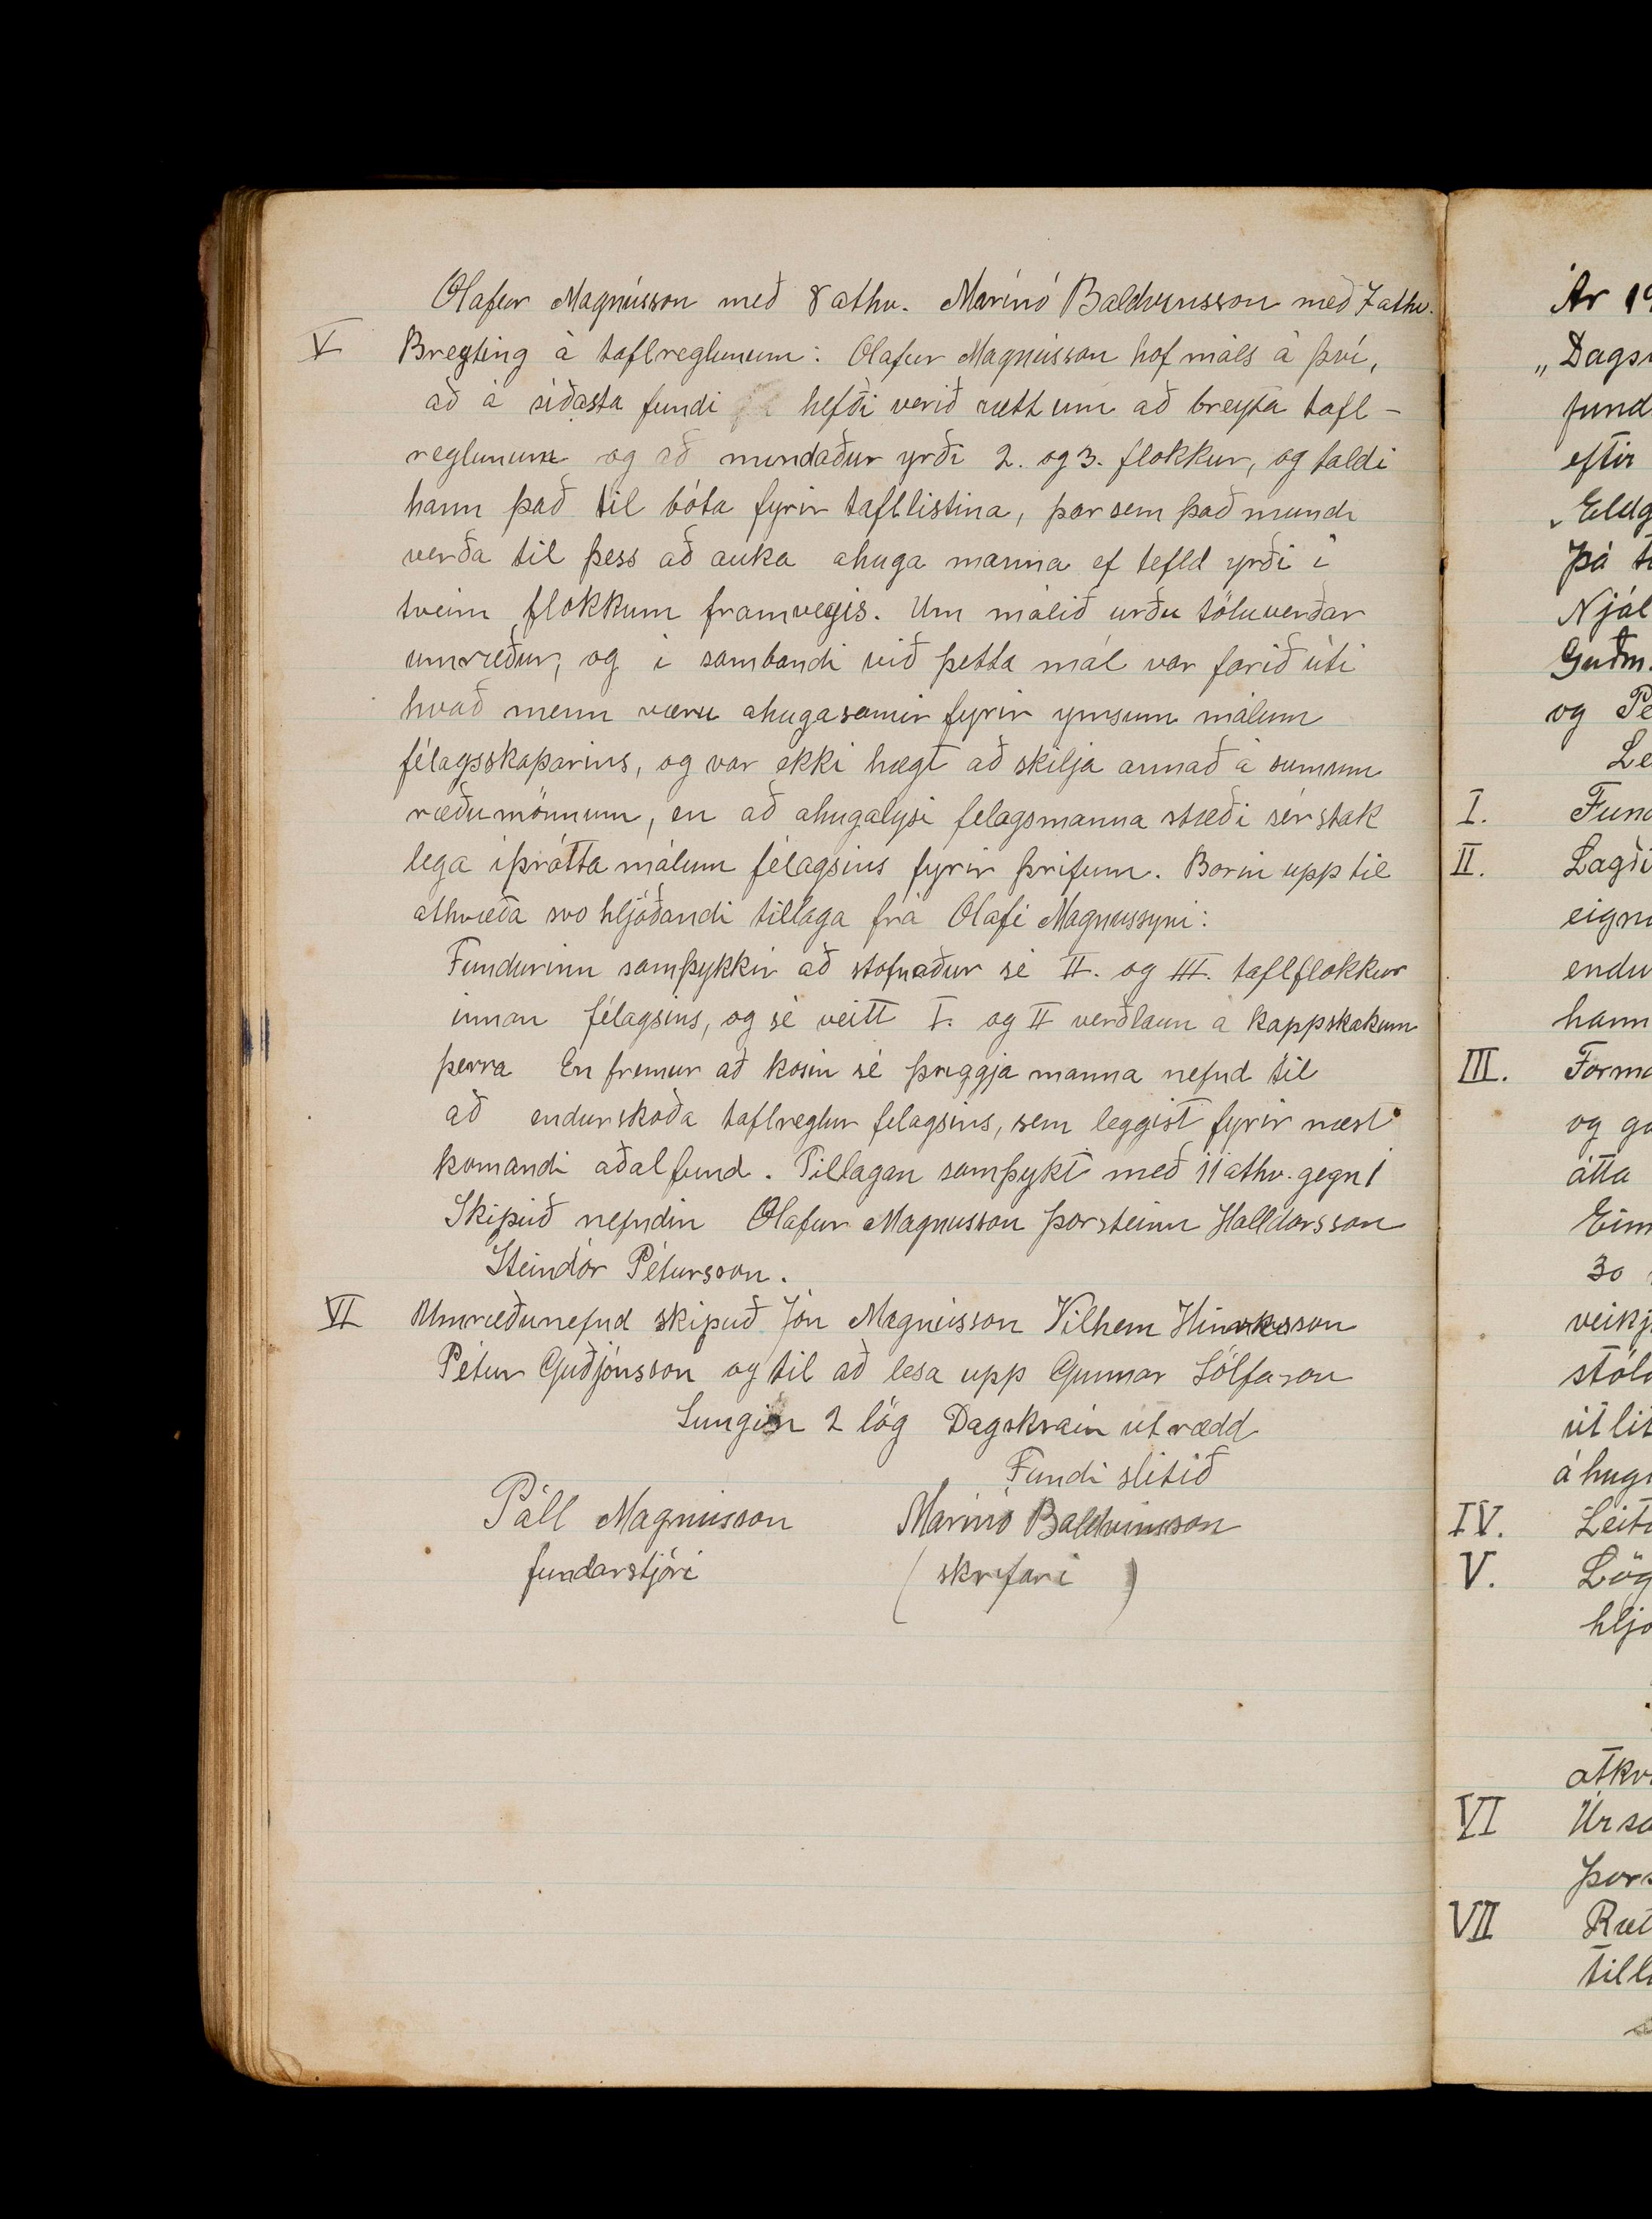 Olafur Magnússon með 8 athv. Marinó Baldvinsson með 7 athv.
V Breyting á taflreglunum: Olafur Magnússon hof máls á því,
að á síðasta fundi hefði verið rætt um að breyta tafl-
reglunum og að mindaður yrði 2. og 3. flokkur, og taldi
hann það til bóta fyrir tafllistina, þar sem það mundi
verða til þess að auka ahuga manna ef tefld yrði í
tveim flokkum framvegis. Um málið urðu töluverðar
umræður, og í sambandi við þetta mál var farið úti
hvað menn væru ahugasamir fyrir ymsum málum
félagsskaparins, og var ekki hægt að skilja annað á sumum
ræðumönnum, en að ahugalysi felagsmanna stæði sérstak
lega íþrótta málum félagsins fyrir þrifum. Borin upp til
athvæða svo hljóðandi tillaga frá Olafi Magnussyni:
Fundurinn samþykkir að stofnaður sé II. og III. taflflokkur
innan félagsins, og sé veitt I. og II verðlaun á kappskakum
þerra En fremur að kosin sé þriggja manna nefnd til
að endurskoða taflreglur felagsins, sem leggist fyrir næst
komandi aðalfund. Tillagan samþykt með 11 athv. gegn 1
Skipuð nefndin Olafur Magnusson Þorsteinn Halldorsson
Steindór Pétursson.
VI Umræðunefnd skipuð Jón Magnússon Vilhem Hinriksson
Pétur Guðjónsson og til að lesa upp Gunnar Sólfason
Sungin 2 lög Dagskráin útrædd
Fundi slitið
Páll Magnússon Marinó Baldvinsson
fundarstjóri (skrifari)
Ár 19
„Dags
fund
eftir
„Eldg
þá t
Njál
Guðm.
og Pé
Le
I. Fund
II. Lagði
eign
endu
hann
III. Forma
og ga
átta
Einn
30
veikj
stóla
útlit
áhug
IV. Leit
V. Lög
hljó
atkv
VI Úrsa
Þors
VII Ræt
till